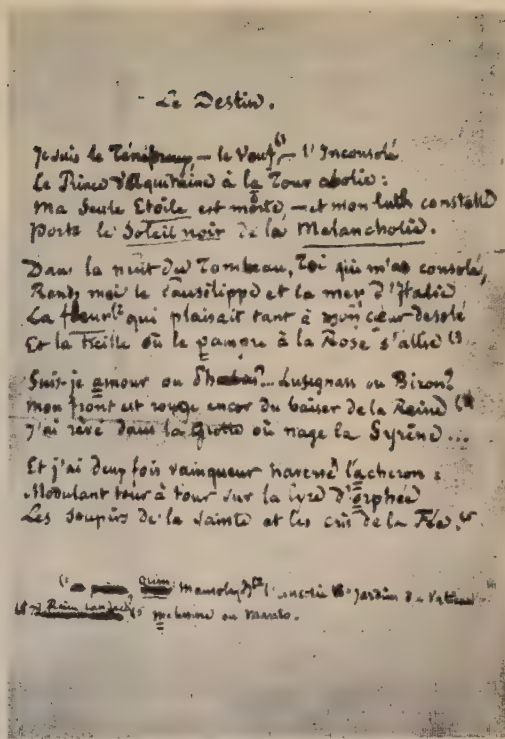 Le Destin.
Je suis le Ténébreux — le Veuf (1) — l'Inconsolé
Le Prince d'Aquitaine à la Tour abolie:
Ma seule Etoile est morte, — et mon luth constellé
Porte le Soleil noir de la Melancholie.
Dans la nuit du Tombeau, Toi qui m'as consolé,
Rends moi le Pausilippe et la mer d'Italie
La fleur (2 qui plaisait tant à mon cœur desolé
Et la Treille où le pampre à la Rose s'allie (3)
Suis-je amour ou Phœbus?... Lusignan ou Biron?
Mon front est rouge encor du baiser de la Reine (4)
J'ai rêvé dans la Grotte où nage la Syrène...
Et j'ai deux fois vainqueur traversé l'acheron:
Modulant tour à tour sur la lyre d'orphée
Les Soupirs de la Sainte et les cris de la Fée. (5
(1 Mausole? (2 l'ancolie (3 Jardin du Vatican
(4 Reine Candace? (5 Melusine ou Manto.